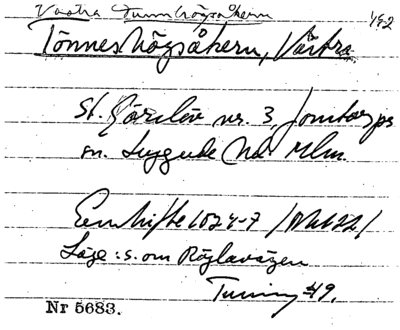 Västra Tunnhögsåkern 1½2
Tönneshögsåkern, Västra
St. Görslöv nr. 3, Jonstorps
sn. Luggude hd. Mlm.
Enskifte 1824-7 /
Läge: s. om Röglavägen
Tuneng 49.
Nr 5683.